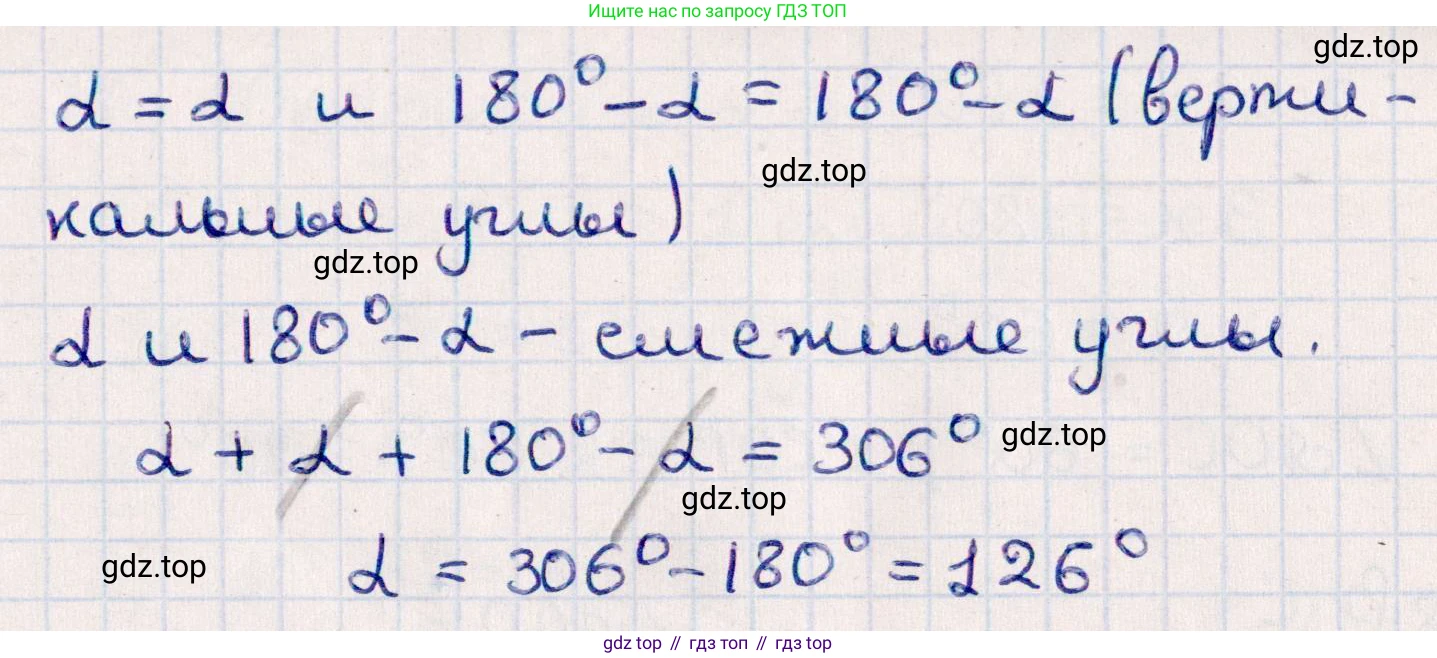 Ищите нас по запросу ГДЗ ТОП
gdz.top
α = α и 180° - α = 180° - α (верти-
gdz.top
кальные углы)
gdz.top
α и 180° - α - смежные углы.
α + α + 180° - α = 306°
gdz.top
gdz.top
α = 306° - 180° = 126°
gdz.top
gdz top // гдз топ // гдз top